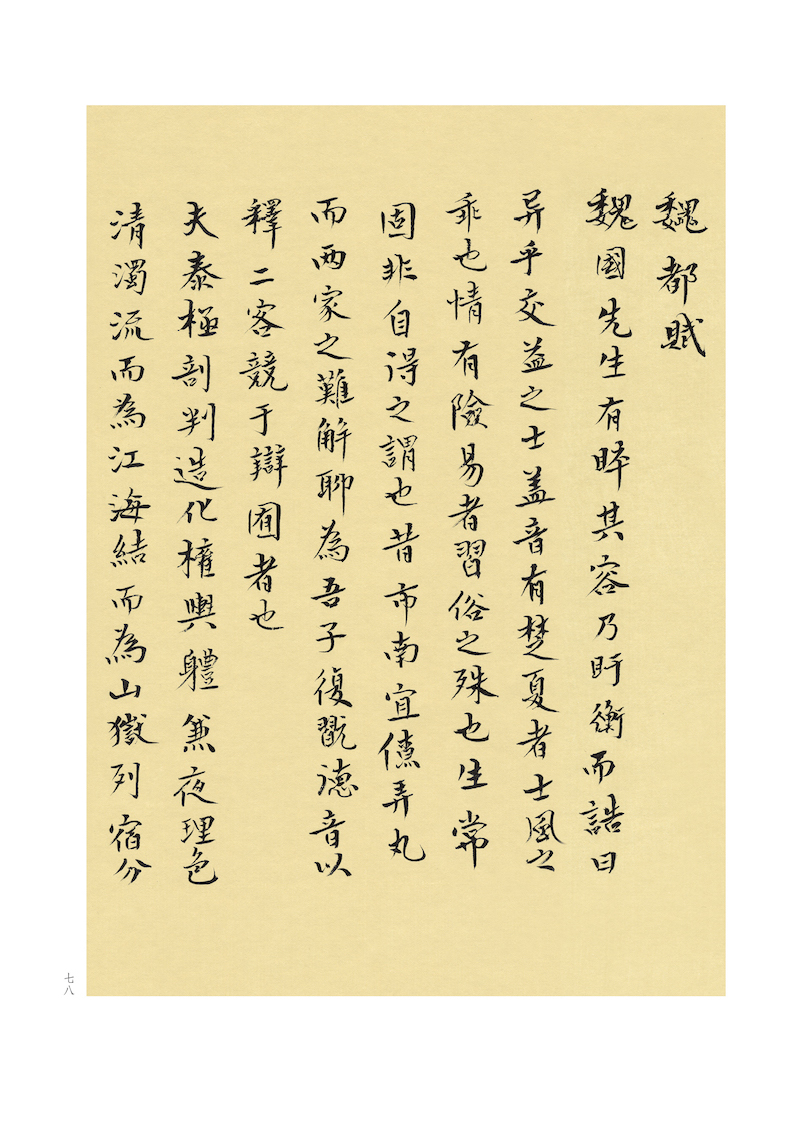 魏都賦
魏國先生有睟其容乃盱衡而誥曰
异乎交益之士盖音有楚夏者士風之
乖也情有險易者習俗之殊也生常
固非自得之謂也昔市南宜僚弄丸
而两家之難解聊為吾子復翫德音以
釋二客競于辯囿者也
夫泰極剖判造化權輿軆兼夜理色
清濁流而為江海結而為山嶽列宿分
七八